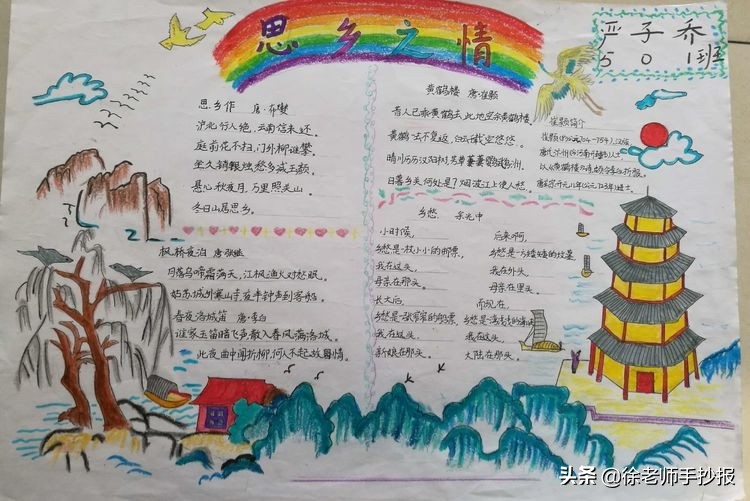 思乡之情
严子乔
501班
思乡作 唐·
沪北行人绝,云南信未还。
庭前花不扫,门外柳谁攀。
坐久销银烛,愁多减玉颜。
悬心秋夜月,万里照关山。
冬日山居思乡。
枫桥夜泊 唐·张继
月落乌啼霜满天,江枫渔火对愁眠。
姑苏城外寒山寺,夜半钟声到客船。
春夜洛城笛 唐·李白
谁家玉笛暗飞声,散入春风满洛城。
此夜曲中闻折柳,何人不起故园情。
黄鹤楼 唐·崔颢
昔人已乘黄鹤去,此地空余黄鹤楼。
黄鹤一去不复返,白云千载空悠悠。
晴川历历汉阳树,芳草萋萋鹦鹉洲。
日暮乡关何处是?烟波江上使人愁。
崔颢简介
崔颢(公元704-754),汉族
唐代汴州(今河南开封)人士
以《黄鹤楼》
乡愁 余光中
小时候,
乡愁是一枚小小的邮票,
我在这头,
母亲在那头。
长大后,
乡愁是一张窄窄的船票,
我在这头,
新娘在那头。
后来啊,
乡愁是一方矮矮的坟墓,
我在外头,
母亲在里头
而现在,
乡愁是一湾浅浅的海峡
我在这头,
大陆在那头。
头条 @徐老师手抄报